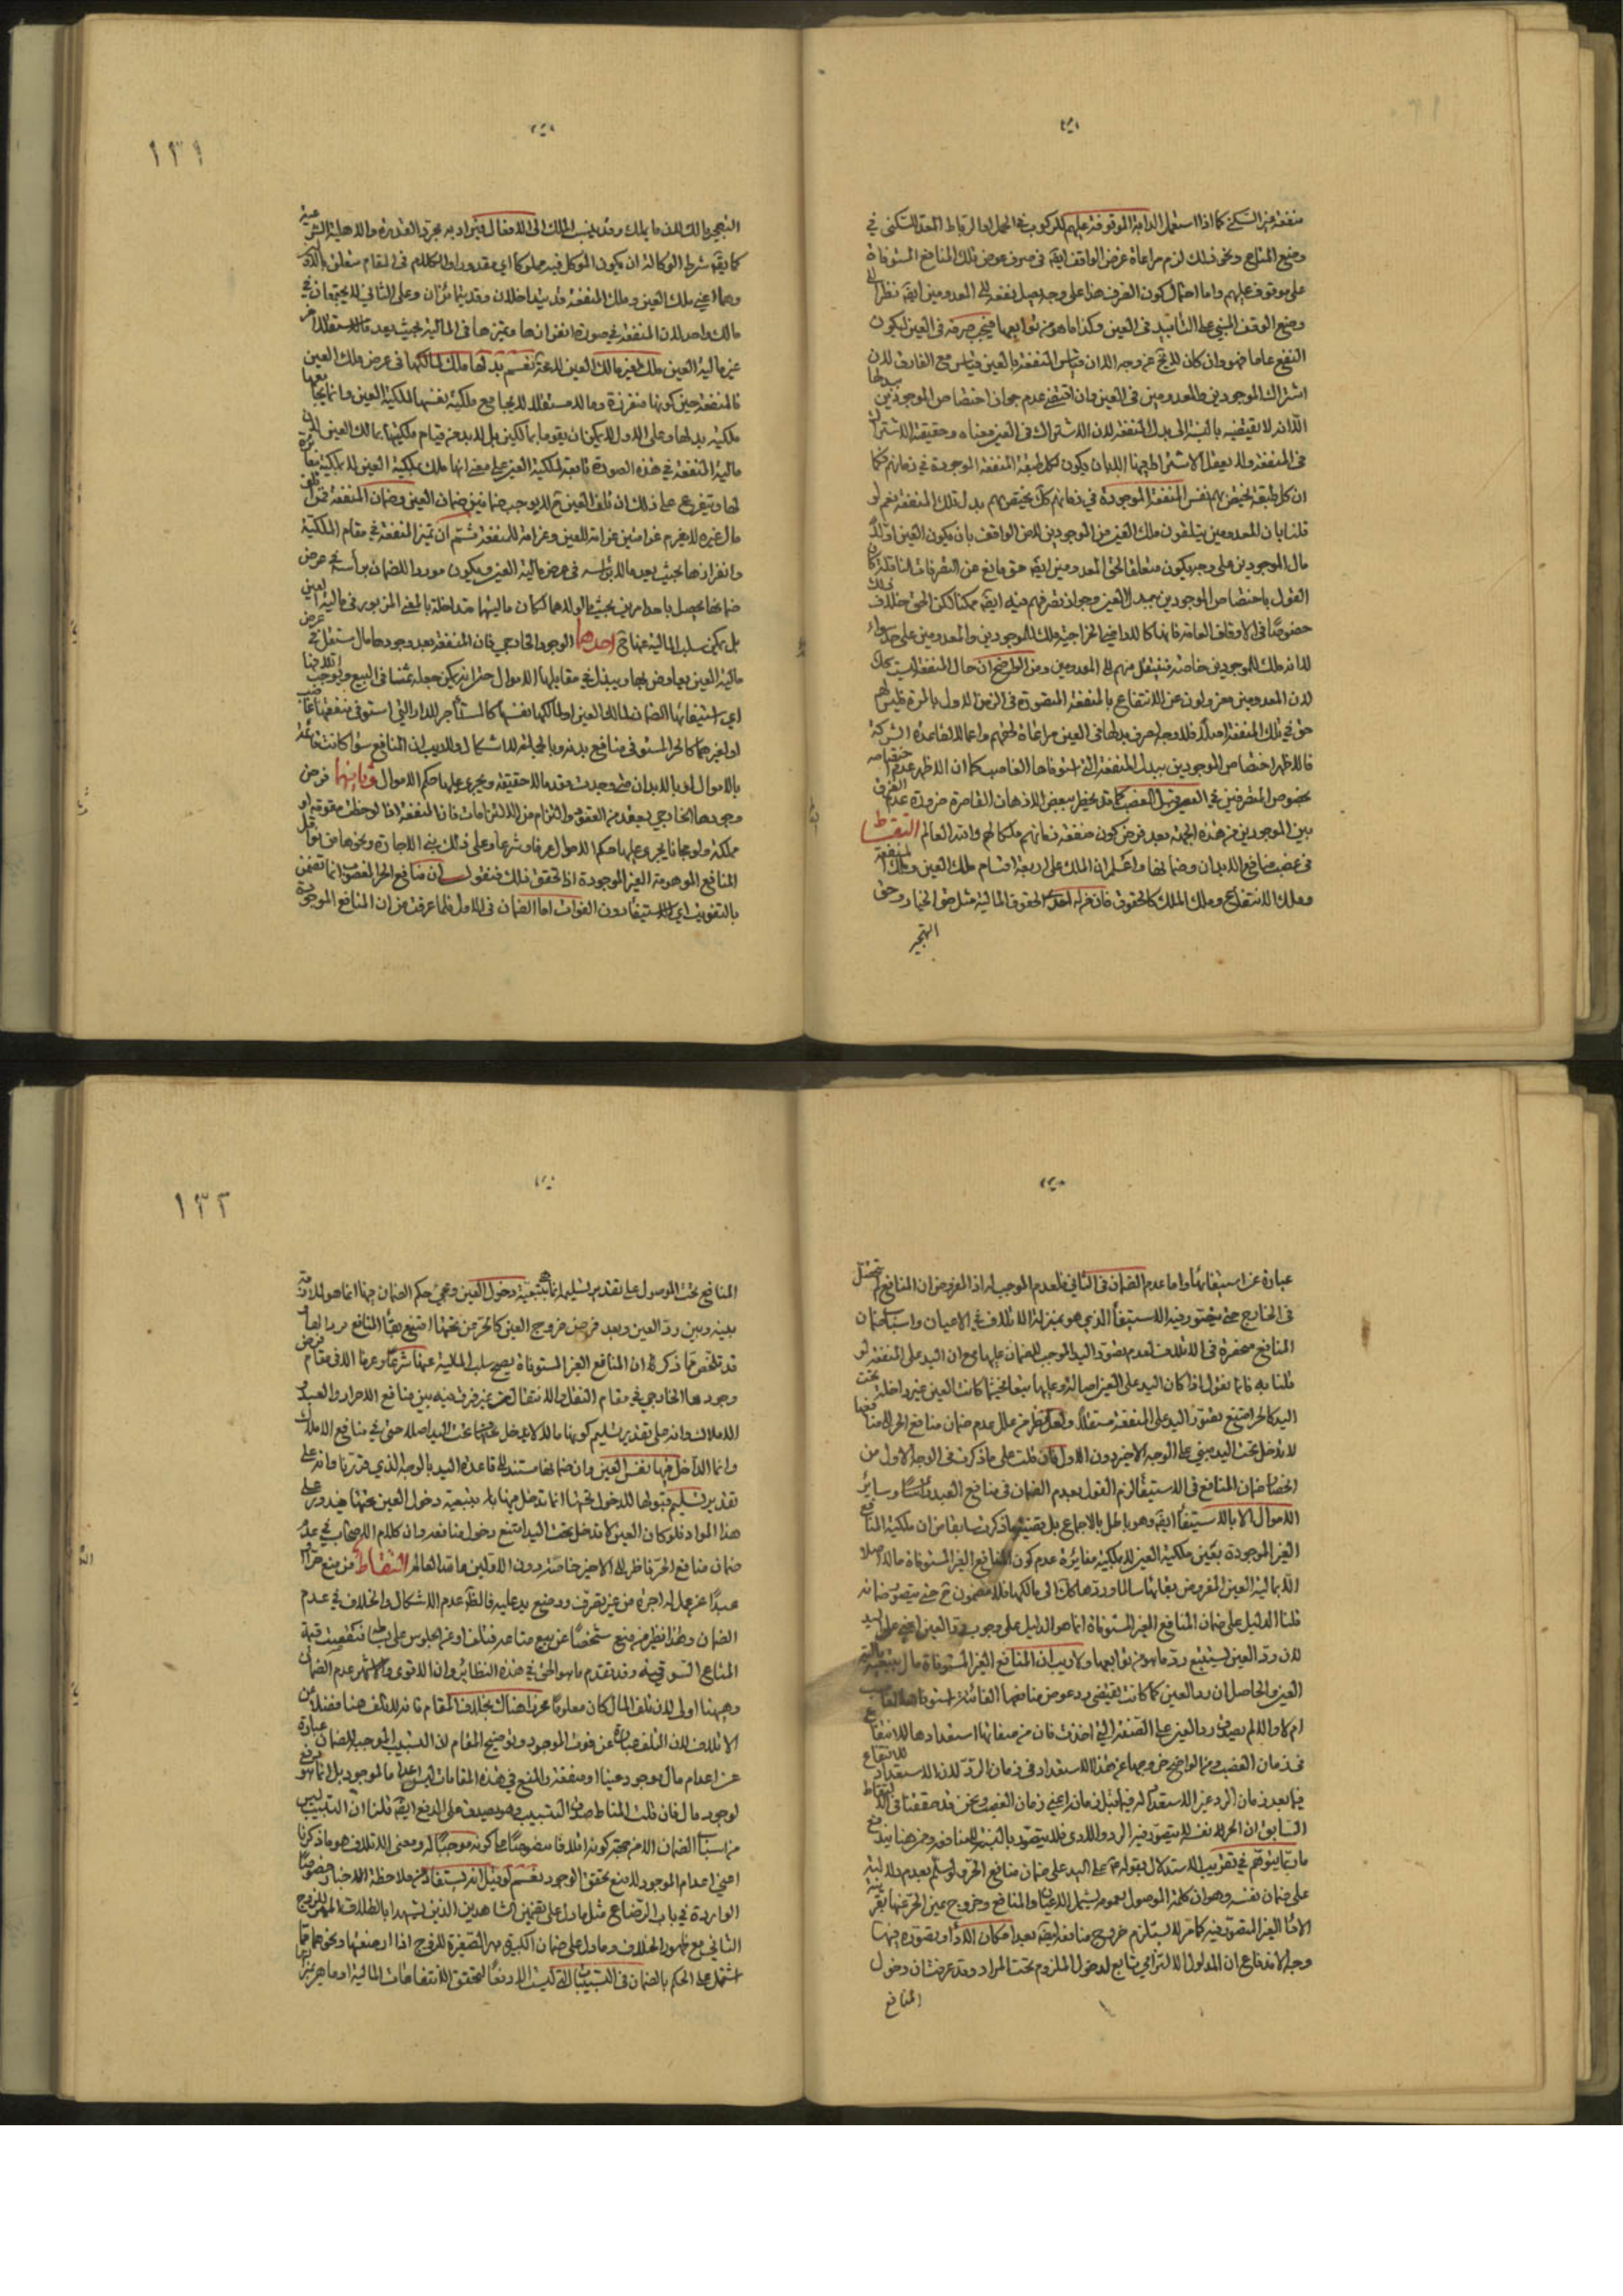 منفعة غير السكنى كما اذا استعمل الدابة الموقوفة عليهم للركوب في الحمل او الرباط المعد للسكنى في
وضع المتاع ونحو ذلك لزم مراعاة غرض الواقف ايضا في صرف عوض تلك المنافع المستوفاة
على موقوف عليهم واما احتمال كون الصرف هذا على وجه يصل نفعه الى المعدومين ايضا نظرا الى
وضع الوقف المبني على التأبيد في العين وكذا ما هو من توابعها فيجب صرفه في العين ليكون
النفع عاما فهو وان كان لا يخ عن وجه الا ان قياس المنفعة بالعين قياس مع الفارق لان
اشتراك الموجودين والمعدومين في العين وان اقتضى عدم جواز اختصاص الموجودين ببدلها
الا انه لا يقتضيه بالنسبة الى بدل المنفعة لان الاشتراك في العين معناه وحقيقته الاشتراك
في المنفعة ولا يعقل الاشتراط هنا الا بان يكون لكل طبقة المنفعة الموجودة في زمانهم فكما
ان كل طبقة يختص بهم نفس المنفعة الموجودة في زمانهم كك يختص بهم بدل تلك المنفعة نعم لو
قلنا بان المعدومين يتلقون ملك العين من الموجودين لا من الواقف بان يكون العين اولا
مال الموجودين على وجه يكون متعلقا لحق المعدومين ايضا حق مانع عن التصرفات الناقلة كان
القول باختصاص الموجودين ببدل العين وجواز تصرفهم فيه ايضا ممكنا لكن الحق خلاف ذلك
خصوصا في الاوقاف العامة فانها كالاراضي الخراجية ملك للموجودين والمعدومين على حد سواء
لا انه ملك للموجودين خاصة فينتقل منهم الى المعدومين ومن الواضح ان حال المنفعة ليست كك
لان المعدومين معزولون عن الانتفاع بالمنفعة المتصورة في الزمن الاول بالمرة فليس لهم
حق في تلك المنفعة اصلا فلا وجه لصرف بدلها في العين مراعاة لحقهم واعمالا لقاعدة الشركة
فالاظهر اختصاص الموجودين ببدل المنفعة التي استوفاها الغاصب كما ان الاظهر عدم اختصاصه
بخصوص المتصرفين في العين قبل الغصب كما قد يخطر ببعض الاذهان القاصرة ضرورة عدم الفرق
بين الموجودين من هذه الجهة بعد فرض كون منفعة زمانهم ملكا لهم والله العالم التقاط
في غصب منافع الابدان وضمانها واعلم ان الملك على اربعة اقسام ملك العين وملك المنفعة
وملك الانتفاع وملك الملك كالحقوق الحقوق المالية مثل حق الخيار وحق
التحجير
٢٦٨
التحجير
كما يقال شرط الوكالة ان يكون الموكل فيه مملوكا اي مقدورا والكلام في المقام متعلق
وهما اعني ملك العين وملك المنفعة قد يتداخلان وقد يتمايزان وعلى الثاني لا يجتمعان في
مالك واحد لان المنفعة في صورة انفرازها وتميزها في المالية بحيث يعد مالا مستقلا
عن مالية العين ملك لغير مالك العين
فالمنفعة حين كونها منفرزة ومالا مستقلا لا يجامع ملكية نفسها لملكية العين وانما يجامعها
ملكية بدلها وعلى الاول لا يمكن ان يقوما بمالكين بل لا بد من قيام ملكيتهما بمالك العين لان
مالية المنفعة في هذه الصورة تابعة لملكية العين على معنى انها ملك بملكية العين لا بملكية مغايرة
لها ويتفرع على ذلك ان تلف العين ح لا يوجب ضمانين ضمان العين وضمان المنفعة فمن اتلف
مال غيره لا يغرم غرامتين غرامة للعين وغرامة للمنفعة ثم ان تميز المنفعة في مقام الملكية
وانفرازها بحيث يعد مالا برأسه في عرض مالية العين ويكون موردا للضمان برأسه في عرض
ضمانها يحصل باحد امرين بحيث لولاهما لكان ماليتها متداخلة بالمعنى المزبور في مالية العين
بل يمكن سلب المالية عنها ح احدهما الوجود الخارجي فان المنفعة بعد وجودها مال مستقل في عرض
مالية العين يعاوض بها ويبذل في مقابلها الاموال حتى انه يمكن جعله ثمنا في البيع ويوجب اتلافها
اي استيفائها الضمان لمالك العين او لمالكها نفسها كالمستأجر للدار التي استوفى منفعتها غاصب
او لغيرهما كالحر المستوفى منافع بدنه وبالجملة لا اشكال ولا ريب ان المنافع سواء كانت قائمة
بالاموال او بالابدان متى وجدت تعد مالا حقيقة ويجري عليها حكم الاموال وثانيها فرض
وجودها الخارجي بعقد من العقود والتزام من الالتزامات فان المنفعة اذا لوحظت مقومة او
مملكة ولو مجانا يجري عليها حكم الاموال عرفا وشرعا وعلى ذلك بنى الاجارة ونحوها من نواقل
المنافع الموهومة الغير الموجودة اذا تحقق ذلك فنقول ان منافع الحر المغصوب انما تضمن
بالتفويت اي الاستيفاء دون الفوات اما الضمان في الاول فلما عرفت من ان المنافع الموجودة
١٣١
عبارة عن استيفائها واما عدم الضمان في الثاني فلعدم الموجب له اذ المفروض ان المنافع لم تحصل
في الخارج حتى يتصور فيه الاستيفاء الذي هو بمنزلة الاتلاف في الاعيان واسباب ضمان
المنافع منحصرة في الاتلاف لعدم تصور اليد الموجب للضمان عليها مع ان اليد على المنفعة لو
قلنا به فانما نقول اذا كان اليد على العين اصالة وعليها تبعا فحيثما كانت العين غير داخلة تحت
اليد كالحر امتنع تصور اليد على المنفعة مستقلا ولعل نظر من علل عدم ضمان منافع الحر بان منافعها
لا تدخل تحت اليد مبني على الوجه الاخير دون الاول فان قلت على ما ذكرت في الوجه الاول من
انحصار ضمان المنافع في الاستيفاء لزم القول بعدم الضمان في منافع العبد وسائر
الاموال الا بالاستيفاء ايضا وهو باطل بالاجماع بل يقتضيه ما ذكرت سابقا من ان ملكية المنافع
الغير الموجودة بعين ملكية العين لا بملكية مغايرة عدم كون المنافع الغير المستوفاة مالا اصلا
الا بمالية العين المفروض بقائها سالما وردها كك الى مالكها فلا مضمون ح حتى يتصور ضمانه
قلنا الدليل على ضمان المنافع الغير المستوفاة انما هو الدليل على وجوب رد العين اعني على اليد
لان رد العين يستتبع رد ما هو من توابعها ولا ريب ان المنافع الغير المستوفاة مال بتبعية مالية
العين والحاصل ان رد العين كما كانت يقتضي رد عوض منافعها الفائتة استوفاها الغاصب
ام لا والا لم يصدق رد العين على الصفة التي اخذت فان من صفاتها استعدادها للانتفاع
في زمان الغصب ومن الواضح خروجها عن هذا الاستعداد في زمان الرد لان الاستعداد للانتفاع
فيما بعد زمان الرد غير الاستعداد له فيما قبل زمانه اعني زمان الغصب ونحن قد حققنا في الالتقاط
السابق ان الحر لا نفسه لا يتصور فيه الرد والاداء فلا يتصور بالنسبة الى منافعه ومن هنا يندفع
ما ربما يتوهم في تقريب الاستدلال بقوله على اليد على ضمان منافع الحر ولو سلم بعدم دلالته
على ضمان نفسه وهو ان كلمة الموصول بعمومه يشمل الاعيان والمنافع وخروج عين الحر عنها بقرينة
الاداء الغير المتصور فيه كما مر لا يستلزم خروج منافعه ايضا بعد امكان الاداء وتصوره فيها
وجه الاندفاع ان المدلول الالتزامي تابع لدخول الملزوم تحت المراد وقد عرفت ان دخول
المنافع
المنافع تحت الموصول على تقدير تسليمه انما بتبعية دخول العين ومجيء حكم الضمان فيها انما هو للملازمة
بينه وبين رد العين وبعد فرض خروج العين كالحر من تحتها امتنع بقاء المنافع مرادا بها
قد تلخص مما ذكر ان المنافع الغير المستوفاة يصح سلب المالية عنها شرعا وعرفا الا في مقام فرض
وجودها الخارجي في مقام النقل والانتقال من غير فرق فيه بين منافع الاحرار والعبيد
الاملاك وانه على تقدير تسليم كونها مالا لا يدخل تحت اليد اصلا حتى في منافع الاملاك
وانما الداخل فيها نفس العين وان ضمانها مستند الى قاعدة اليد بالوجه الذي قررنا وانه على
تقدير تسليم قبولها للدخول تحتها انما تدخل فيها بتبعية دخول العين تحتها فيدور على
هذا المواد فلو كان العين لا تدخل تحت اليد امتنع دخول منافعه وان كلام الاصحاب في عدم
ضمان منافع الحر ناظر الى الاخير خاصة دون الاولين والله العالم التقاط من منع حرا او
عبدا عن عمل له اجرة من غير تصرف ووضع يد عليه فالظ عدم الاشكال والخلاف في عدم
الضمان وهذا نظير من منع شخصا عن بيع متاعه فتلف او عن الجلوس على بساطه فنقصت قيمة
المتاع السوقية وقد تقدم ما هو الحق في هذه النظائر وان الاقوى والاشهر عدم الضمان
وهيهنا اولى لان تلف المال كان معلوما محرزا هناك بخلاف المقام فانه لا تلف هنا فضلا عن
الاتلاف لان التلف عبارة عن فوت الموجود وتوضيح المقام ان التسبيب الموجب للضمان عبارة
عن اعدام مال موجود عينا او منفعة والمنع في هذه المقامات ليس اعداما لموجود بل انما هو مانع
لوجود مال فان قلت المناط صدق التسبيب وهو يصدق على المنع ايضا قلنا ان التسبيب ليس
من اسباب الضمان الا من جهة كونه اتلافا منصوصا على كونه موجبا له ومعنى الاتلاف هو ما ذكرنا
اعني اعدام الموجود لا منع تحقق الوجود نعم لو قيل انه يستفاد من ملاحظة الاخبار خصوصا
الواردة في باب الرضاع مثل ما دل على تضمين الشاهدين الذين شهدا بالطلاق المهر للزوج
الثاني مع ظهور الخلاف وما دل على ضمان الكبيرة مهر الصغيرة للزوج اذا ارضعتها ونحوهما مما
اشتمل على الحكم بالضمان في التسبيبات التي ليست الا دفعا لتحقق الانتفاعات المالية او ما هو بمنزلتها
١٣٢